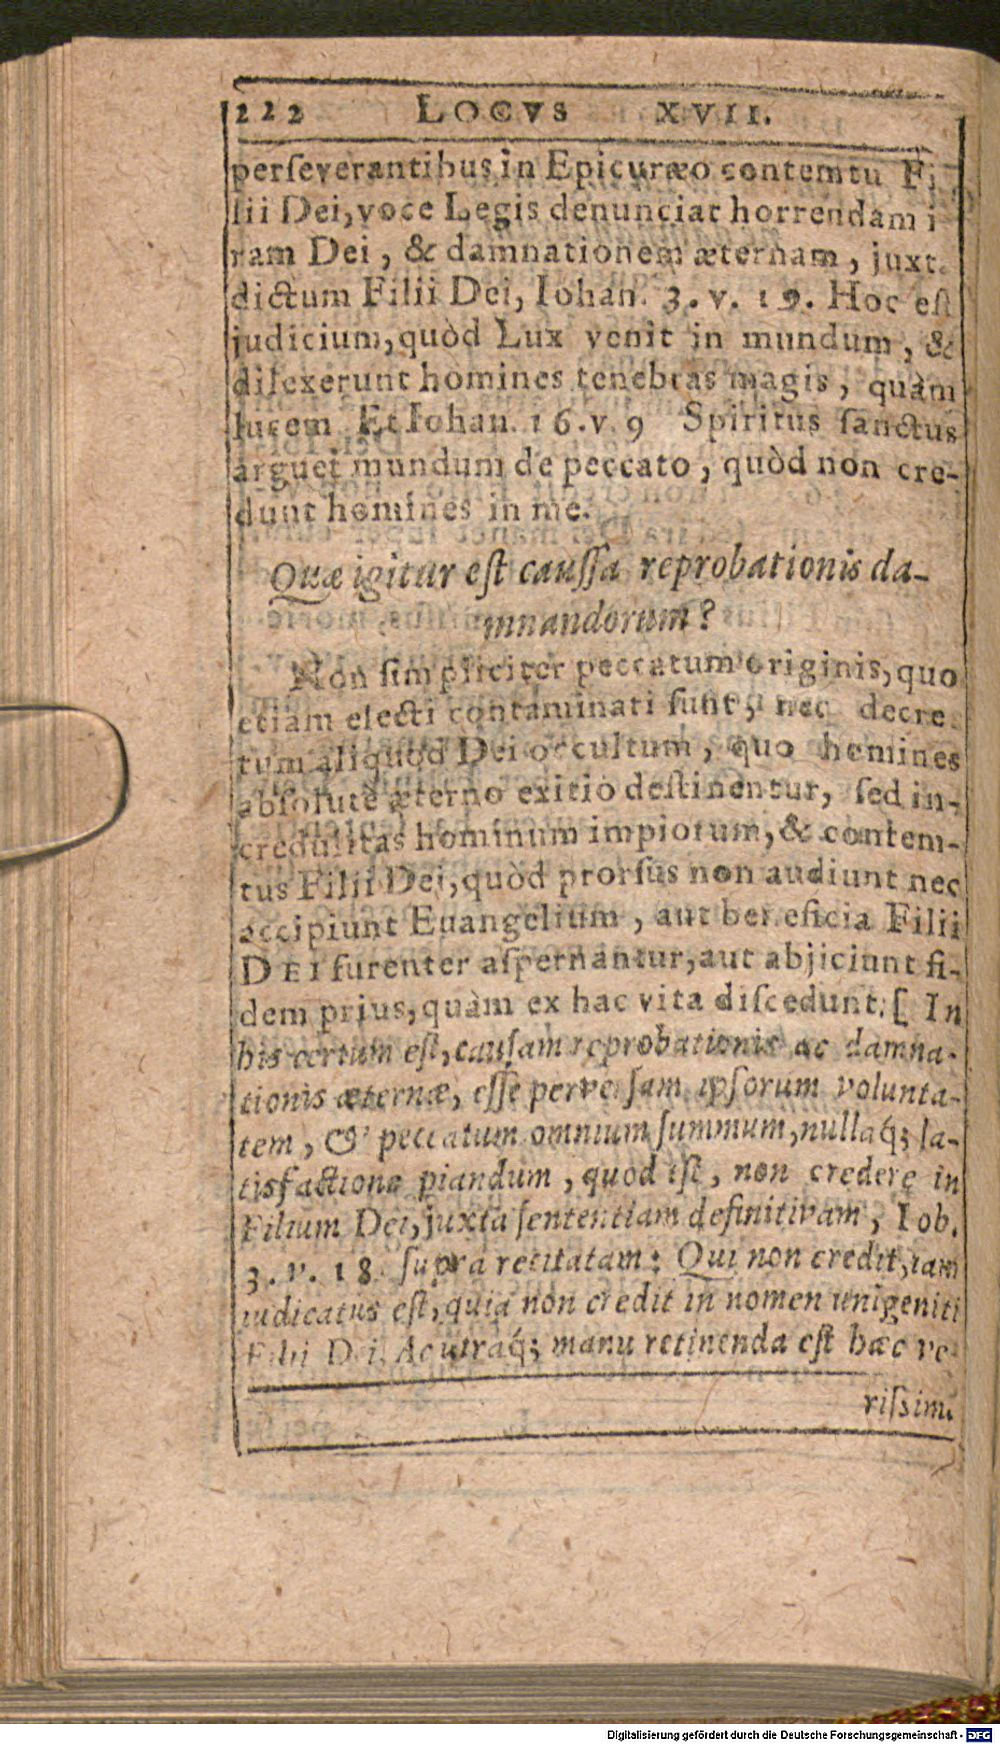 222 LOCVS XVII.
perſeverantibus in Epicuræo contemtu Fi
lii Dei, voce Legis denunciat horrendam i
ram Dei, & damnationem æternam, juxt
dictum Filii Dei, Iohan. 3. v. 19. Hoc eſt
judicium, quòd Lux venit in mundum, &
dilexerunt homines tenebras magis, quàm
lucem Et Iohan. 16. v. 9 Spiritus ſanctus
arguet mundum de peccato, quòd non cre-
dunt homines in me.
Quæ igitur eſt cauſſa reprobationis da-
mnandorum?
Non ſimpliciter peccatum originis, quo
etiam electi contaminati ſunt, nec decre
tum aliquod Dei occultum, quo homines
abſolutè æterno exitio deſtinentur, ſed in-
credulitas hominum impiorum, & contem-
tus Filii Dei, quòd prorſus non audiunt nec
accipiunt Euangelium, aut beneficia Filii
DEI furenter aſpernantur, aut abjiciunt fi-
dem prius, quàm ex hac vita diſcedunt. [In
his certum eſt, cauſam reprobationis ac damna-
tionis æternæ, eſſe perverſam ipſorum volunta-
tem, & peccatum omnium ſummum, nullaq́; ſa-
tisfactione piandum, quod iſt, non credere in
Filium Dei, juxta ſententiam definitivam, Ioh.
3. v. 18. ſupra recitatam: Qui non credit, iam
iudicatus eſt, quia non credit in nomen unigeniti
Filii Dei. Ac utraq́; manu retinenda eſt hæc ve-
riſsima
Digitalisierung gefördert durch die Deutsche Forschungsgemeinschaft - DFG